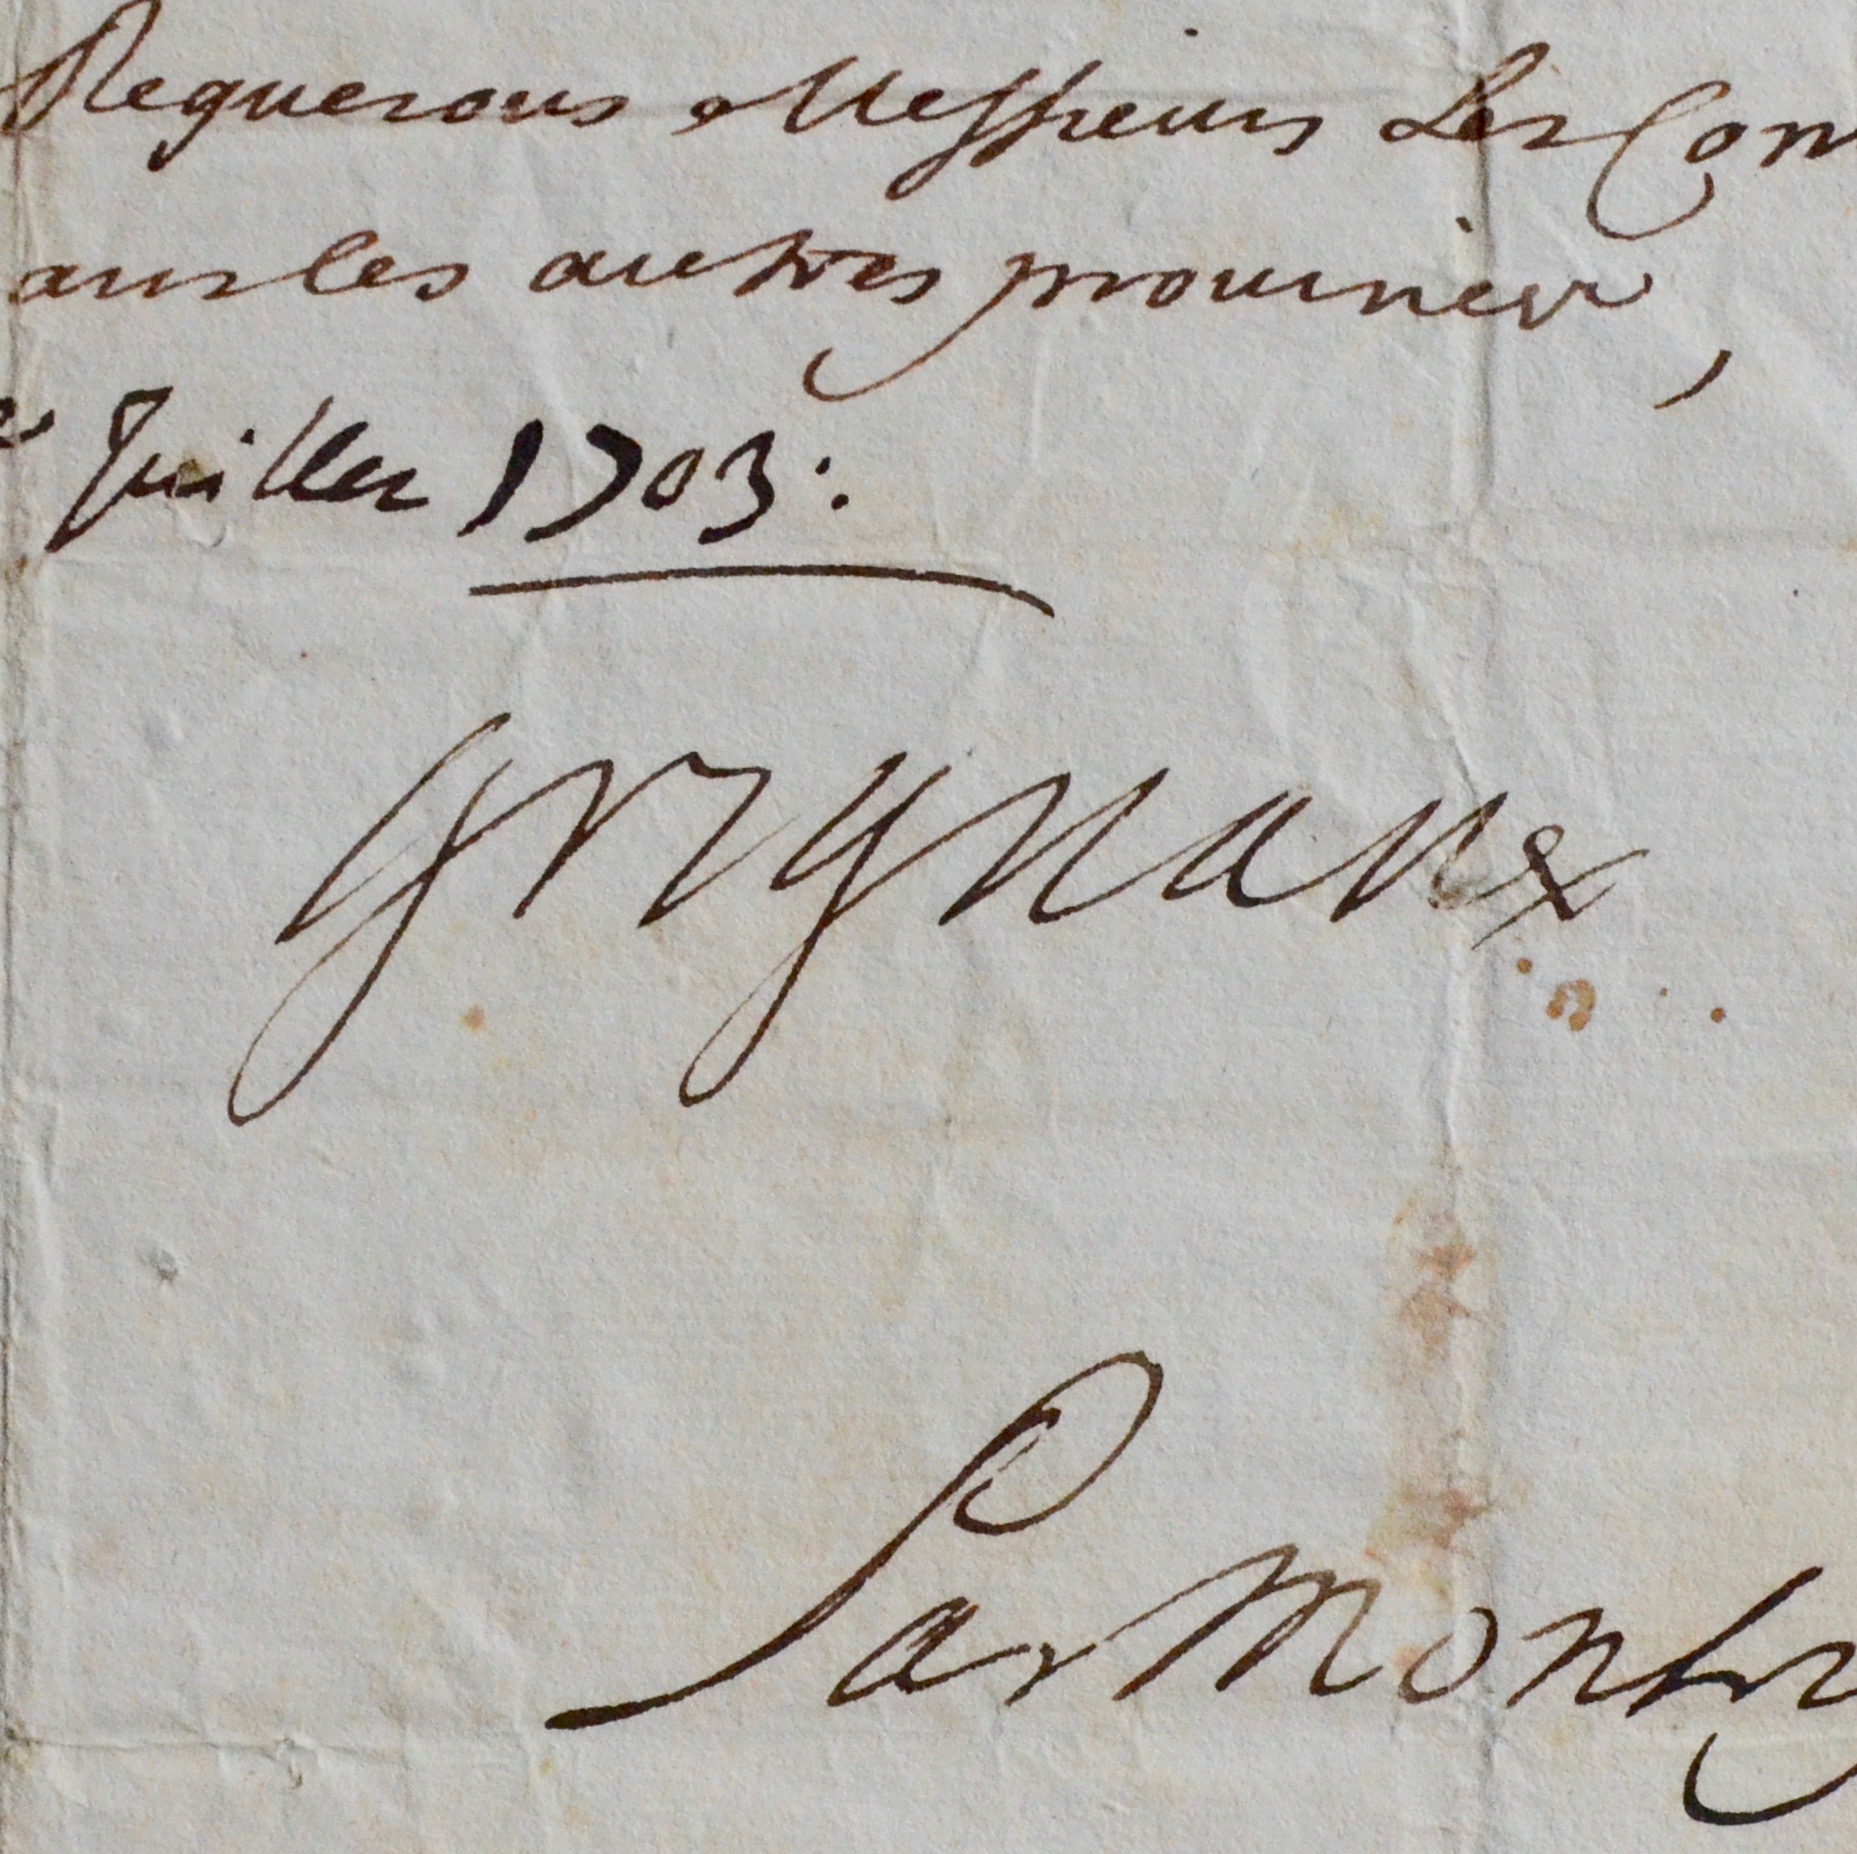 Requerons Messieurs Les Com
ans les autres prouinces,
Juillet 1703:
Grignan
Par Monsg